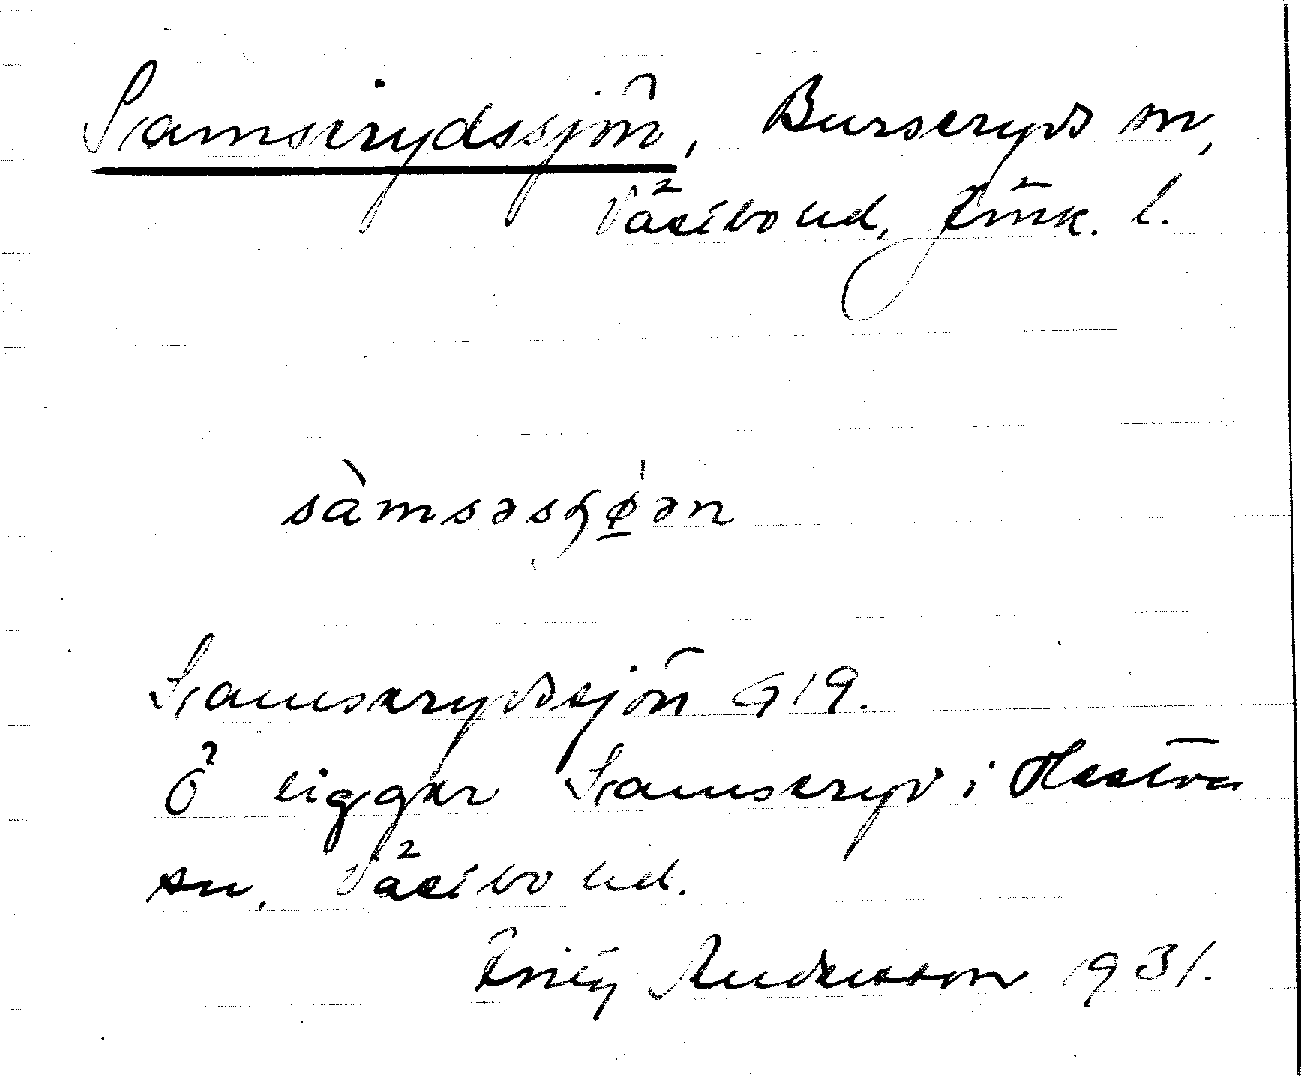 Samserydssjön, Burseryds sn,
Västbo hd, Jönk. l.
sàmsəsɧǿ̱ən
Samserydssjön G19.
Ö ligger Samseryd i Hestra
sn, Västbo hd.
Emily Andersson 1931.